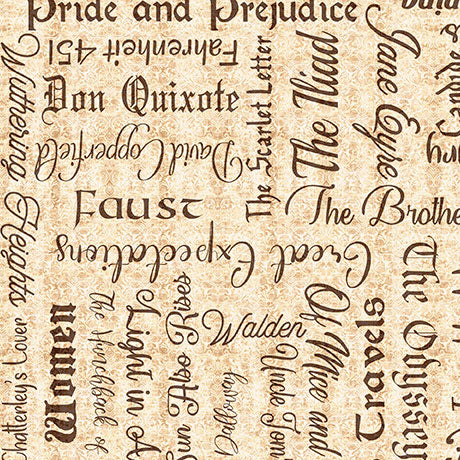 Pride and Prejudice
Fahrenheit 451
Don Quixote
David Copperfield
Faust
Great Expectations
Wuthering Heights
The Scarlet Letter
The Iliad
Jane Eyre
The Brothe
The Odyssey
Walden
Of Mice and
Travels
Uncle Tom
Dalloway
Sun Also Rises
Light in A
The Hunchback of
Women
Chatterley's Lover